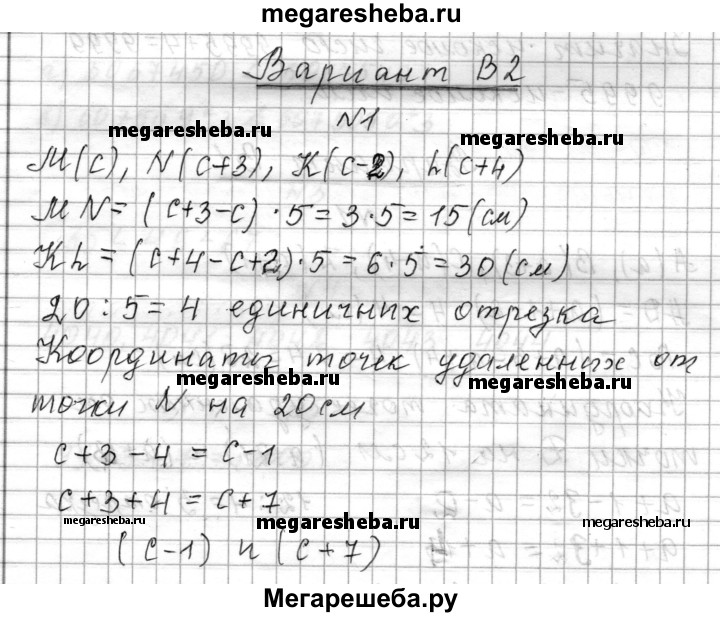 megaresheba.ru
Вариант В2
№1
megaresheba.ru megaresheba.ru
M(c), N(c+3), K(c-2), L(c+4)
MN = (c+3-c)·5 = 3·5 = 15(см)
KL = (c+4-c+2)·5 = 6·5 = 30(см)
20:5=4 единичных отрезка
Координаты точек удаленных от
megaresheba.ru megaresheba.ru
точки N на 20см
c+3-4 = c-1
c+3+4 = c+7
megaresheba.ru megaresheba.ru megaresheba.ru
(c-1) и (c+7)
Мегарешеба.ру